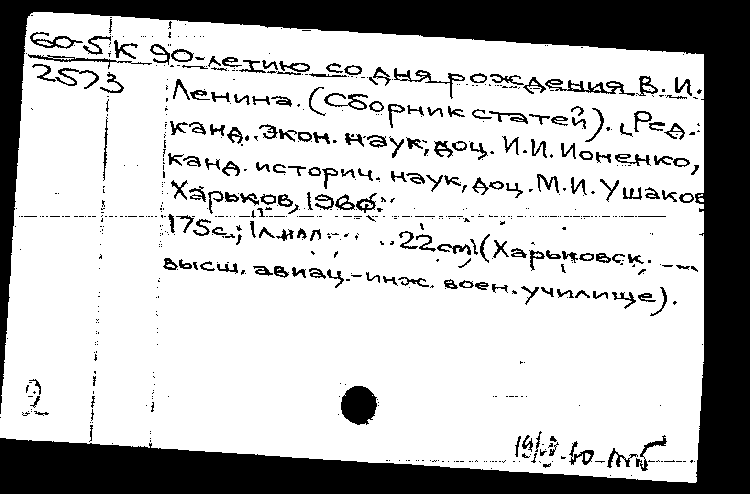 60-5 К 90-летию со дня рождения В. И.
2573
Ленина. (Сборник статей). [Ред.:
канд. экон. наук, доц. И.И. Ионенко,
канд. историч. наук, доц. М.И. Ушаков
Харьков, 1960.
175с.; 1л. 22cm (Харьковск.
высш. авиац.-инж. воен. училище).
2